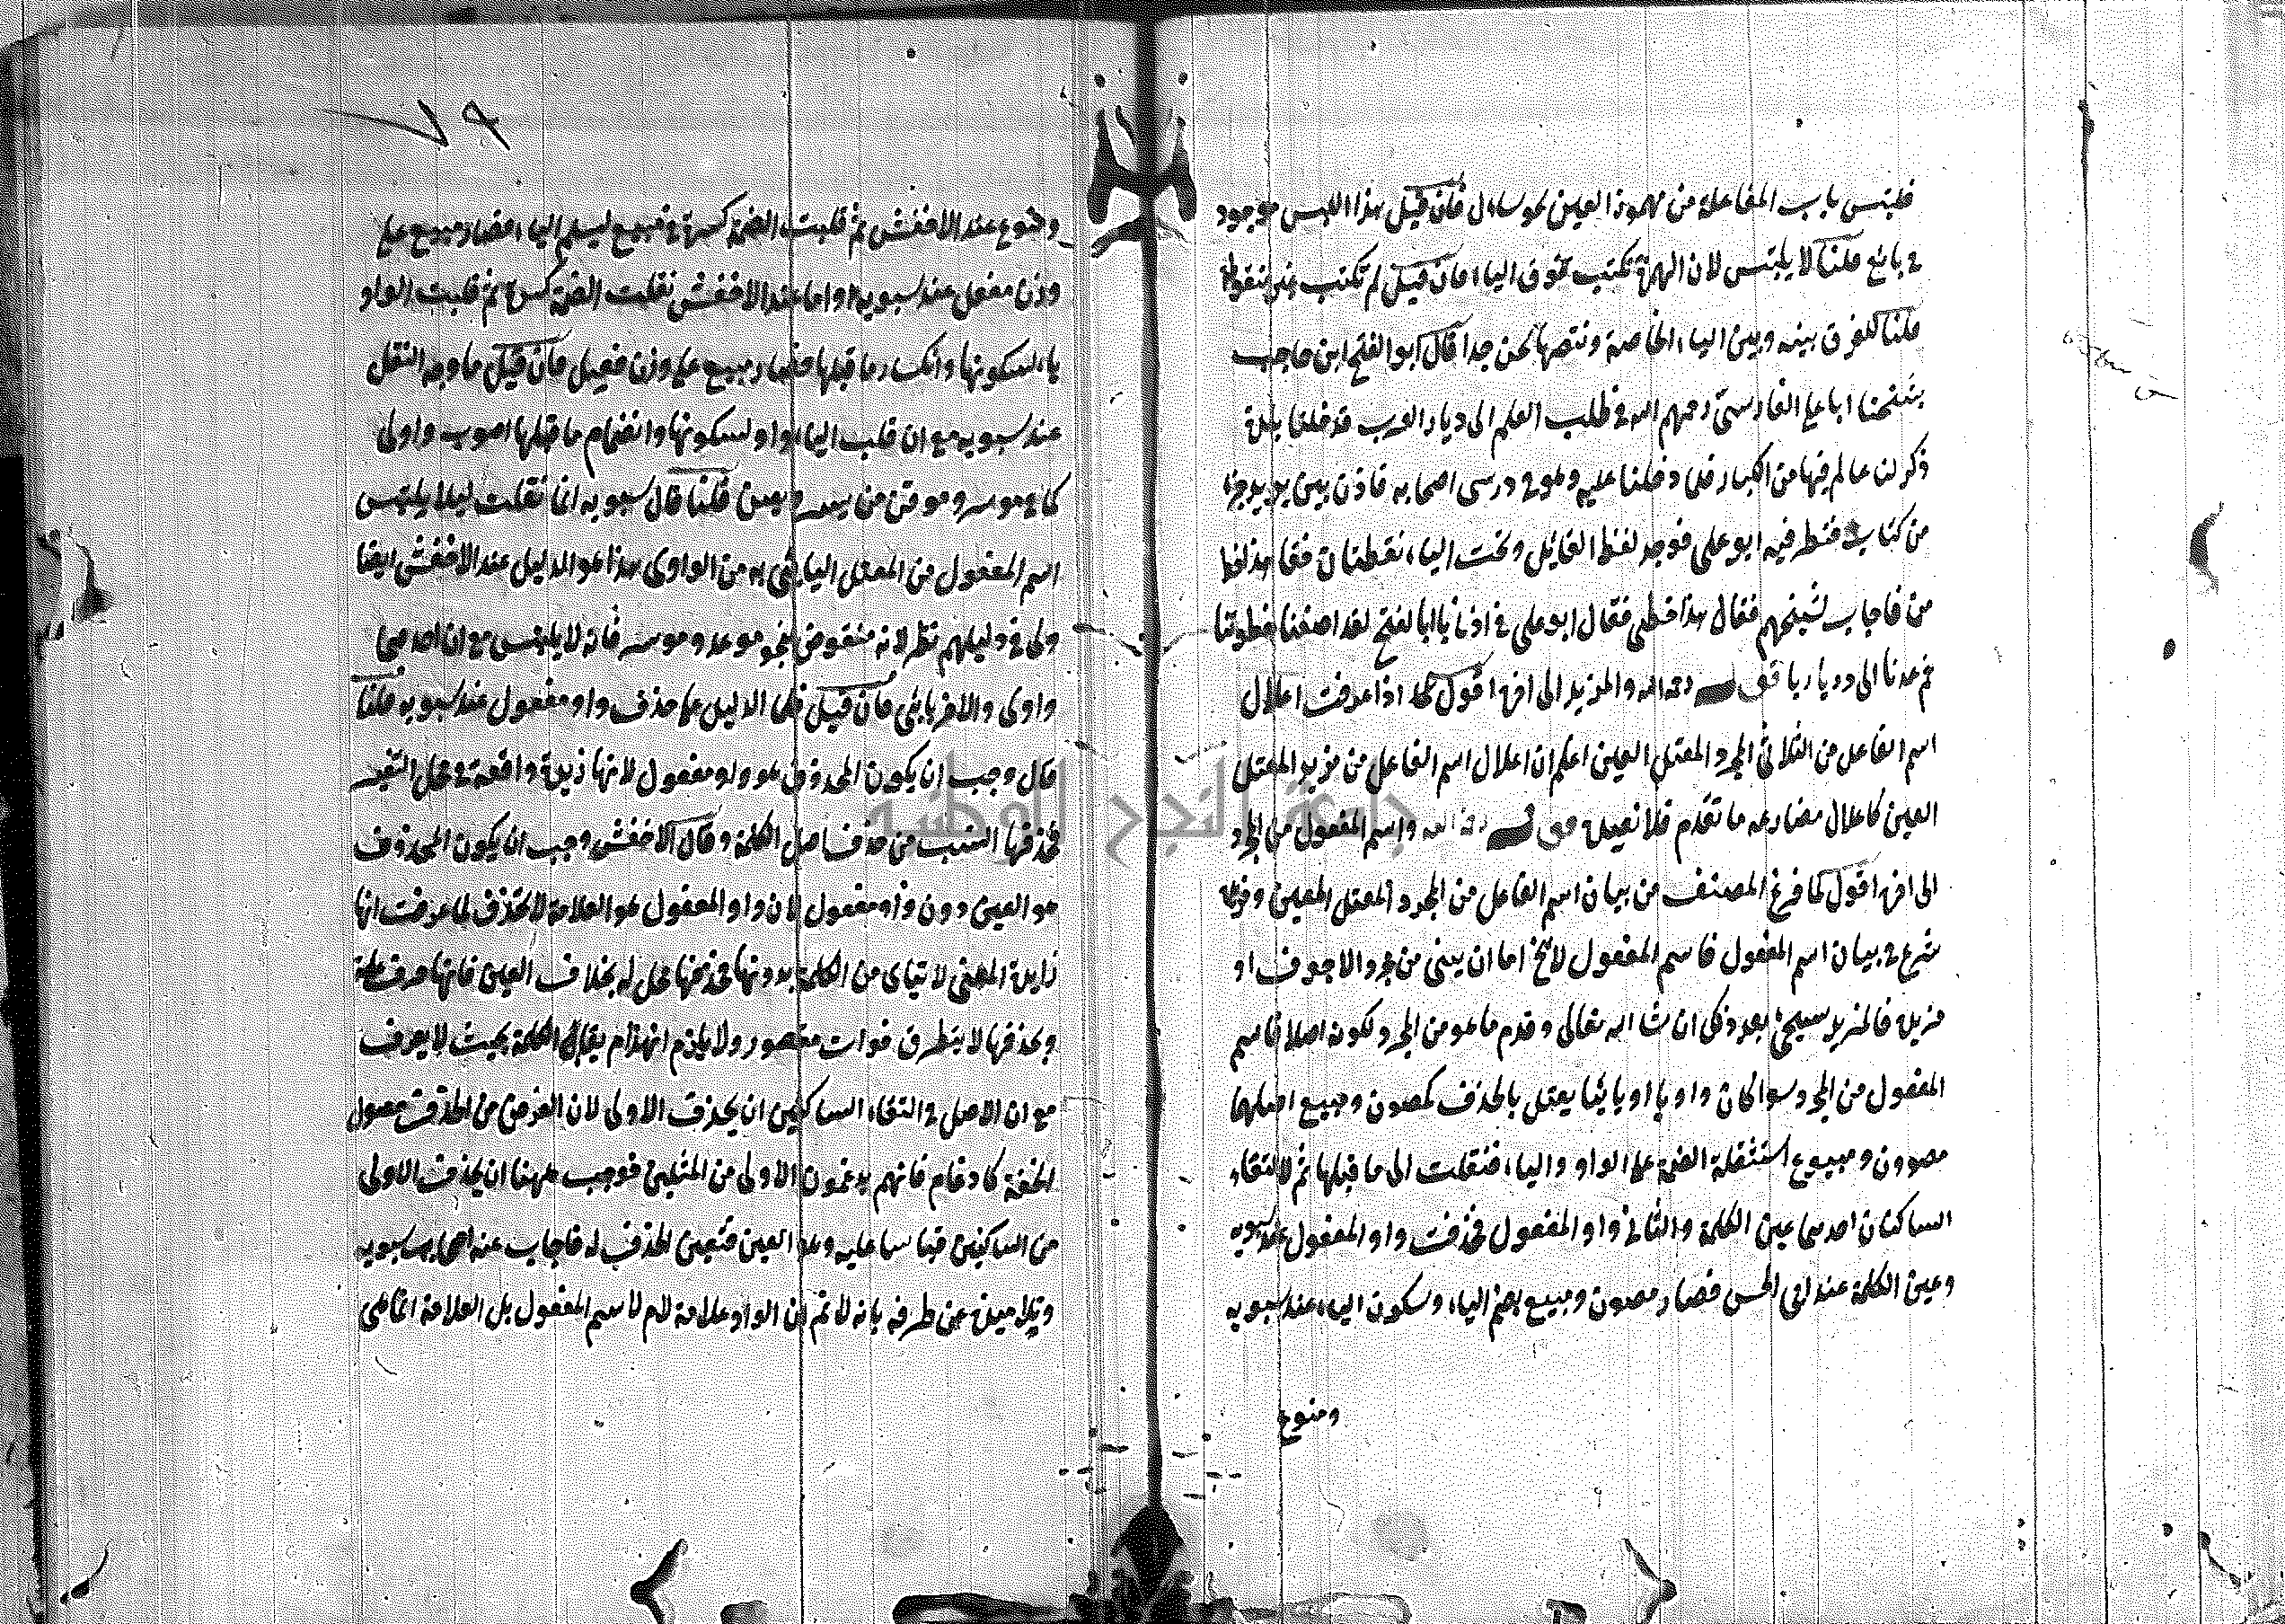 فلبتس باب المفاعلة من مهموز العين نحو ساءل فان قيل هذا اللبس موجود
في بائع قلنا لا يلبتس لان الهمزة تكتب فوق الياء فان قيل لم تكتب بغير نقطة
قلنا للفرق بينه وبين الياء الخاصة ونقطها لحن جدا قال ابو الفتح ابن حاجب
شيخنا ابا على الفارسي رحمهم الله في طلب العلم الى ديار العرب قد خلنا بلدة
ذكر لنا عالم فيها من الكبار فلما دخلنا عليه وهو في درس اصحابه فاذن بين يديه جزء
من كتاب فنظر فيه ابو على فوجد لفظ القائل وتحت الياء نقطتان فقال هذا خط
من فاجاب لشيخهم فقال هذا خطى فقال ابو على في اذني يا ابا لفتح لقد اضعنا خطوتنا
ثم عدنا الى ديارنا قوله رحمه الله والمزيد الى اخره اقول لما اذا عرفت اعلال
اسم الفاعل من الثلاثي المجرد المعتل العين اعلم ان اعلال اسم الفاعل من مزيد المعتل
العين كاعلال مضارعه ما تقدم فلا نعيده قوله رحمه الله واسم المفعول من المجرد
الى اخره اقول لما فرغ المصنف من بيان اسم الفاعل من المجرد المعتل العين ومزيده
شرع في بيان اسم المفعول فاسم المفعول لا يخ اما ان يبنى من مجرد الاجوف او
مزيده فالمزيد سيجئ بعد ذلك ان شا الله تعالى وقدم ما هو من المجرد لكونه اصلا فاسم
المفعول من المجرد سوا كان واويا او يائيا يعتل بالحذف كمصون ومبيع اصلهما
مصوون ومبيوع استثقلة الضمة على الواو والياء فنقلت الى ما قبلها ثم لالتقاء
الساكنان احدهما عين الكلمة والثاني واو المفعول فحذفت واو المفعول عند سبويه
وعين الكلمة عند ابي الحسن فصار مصون ومبيع بضم الياء وسكون الياء عند سبويه
ومبوع
ومبوع عند الاخفش ثم قلبت الضمة كسرة في مبيع ليسلم الياء فصار مبيع على
وزن مفعل عند سبويه واما عند الاخفش نقلت الضمة كسرة ثم قلبت الواو
ياء لسكونها وانكسار ما قبلها فصار مبيع على وزن مفيل فان قيل ما وجه النقل
عند سبويه مع ان قلب الياء واو لسكونها وانضمام ما قبلها اصوب واولى
كما في موسر وموقن من يسر ويقن قلنا قال سبويه انما نقلت ليلا يلبتس
اسم المفعول من المعتل اليائي به من الواوى هذا هو الدليل عند الاخفش ايضا
ولى في دليلهم نظر لانه منقوض بنحو موعد وموسر فانه لا يلبتس مع ان احدهما
واوى والاخر يائى فان قيل فما الدليل على حذف واو مفعول عند سبويه قلنا
قال وجب ان يكون المحذوف هو واو مفعول لانها زيدة واقعة في محل التغير
فحذفها انسب من حذف اصل الكلمة وقال الاخفش وجب ان يكون المحذوف
هو العين دون واو مفعول لان واو المفعول هو العلامة لا تحذف لما عرفت انها
زايدة المعنى لا يتاى من الكلمة بدونها فحذفها محل له بخلاف العين فانها حرف علة
وبحذفها لا يتطرق فوات مقصور ولا يلزم انهدام بقاى الكلمة بحيث لا يعرف
مع ان الاصل في التقاء الساكنين ان يحذف الاولى لان الغرض من الحذف حصول
الخفة كا دغام فانهم يدغمون الاولى من المثلين فوجب ههنا ان يحذف الاولى
من الساكنين قياسا عليه وهو العين فتعين الحذف له فاجاب عنه اصحاب سبويه
وتلاميذه عن طرفه بانه لا تم ان الواو علامة لاسم المفعول بل العلامة انما هى